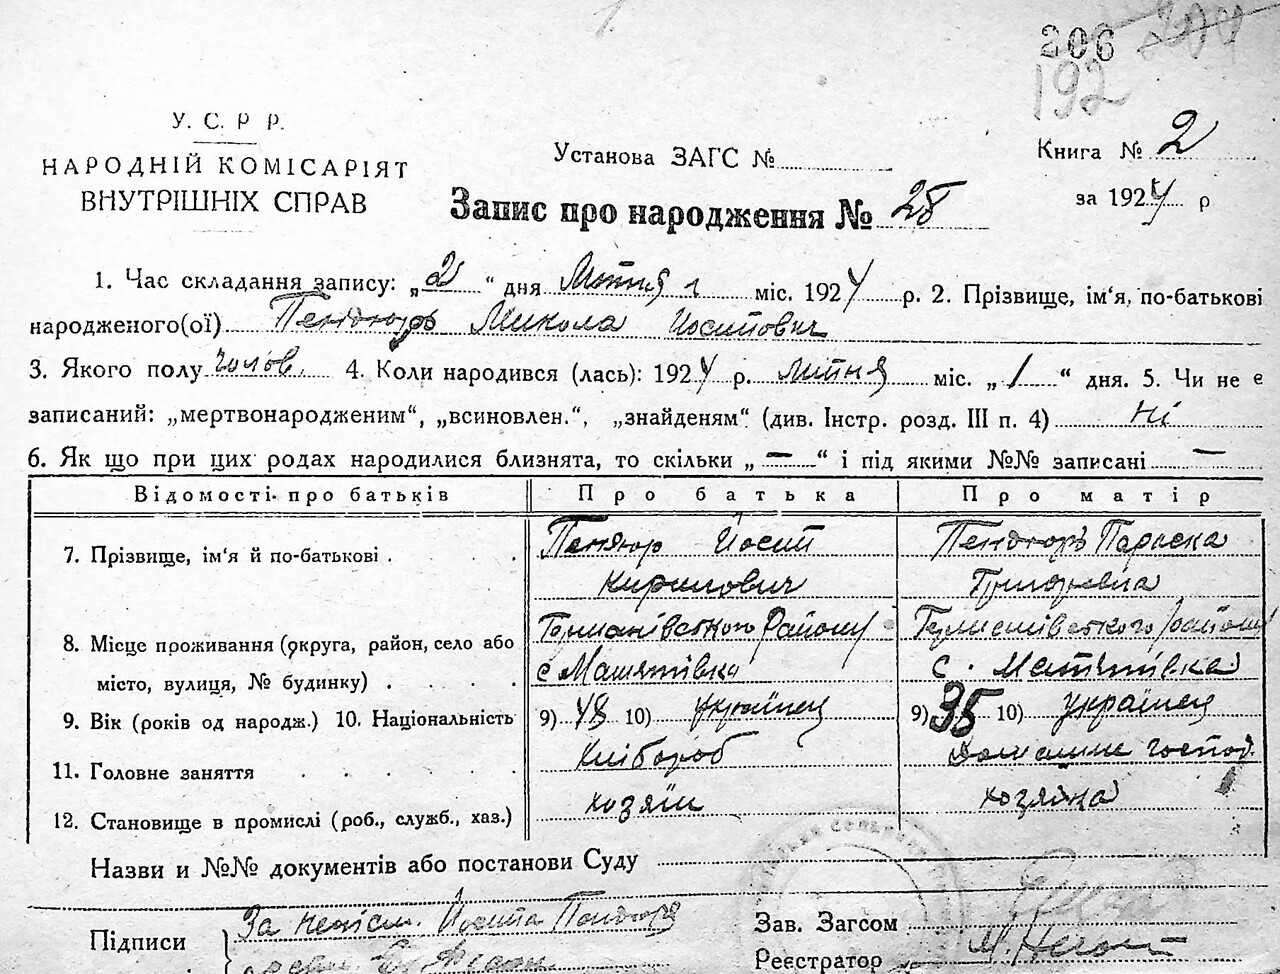 206
192
У. С. Р Р.
НАРОДНІЙ КОМІСАРІЯТ
ВНУТРІШНІХ СПРАВ
Установа ЗАГС №
Книга № 2
за 1924 р
Запис про народження № 28
1. Час складання запису: „2“ дня Лютня міс. 1924 р. 2. Прізвище, ім'я, по-батькові
народженого(ої) Пендюръ Микола Йосипович
3. Якого полу чолов. 4. Коли народився (лась): 1924 р. лютня міс. „1“ дня. 5. Чи не є
записаний: „мертвонародженим“, „всиновлен.“, „знайденям“ (див. Інстр. розд. III п. 4) Ні
6. Як що при цих родах народилися близнята, то скільки „—“ і під якими №№ записані —
Відомості про батьків Про батька Про матір
7. Прізвище, ім'я й по-батькові . . Пендюр Йосип Пендюръ Параска
Кирилович Григорьевна
8. Місце проживання (округа, район, село або Германівського Району Германівського району
місто, вулиця, № будинку) . . . . с Матятівка с. Матятівка
9. Вік (років од народж.) 10. Національність 9) 48 10) українец 9) 35 10) українец
11. Головне заняття . . . . . Хлібороб Домашне господ.
12. Становище в промислі (роб., служб., хаз.) хозяін хозяйка
Назви и №№ документів або постанови Суду
Підписи За неписм. Йосипа Пендюра
Зав. Загсом
Реєстратор